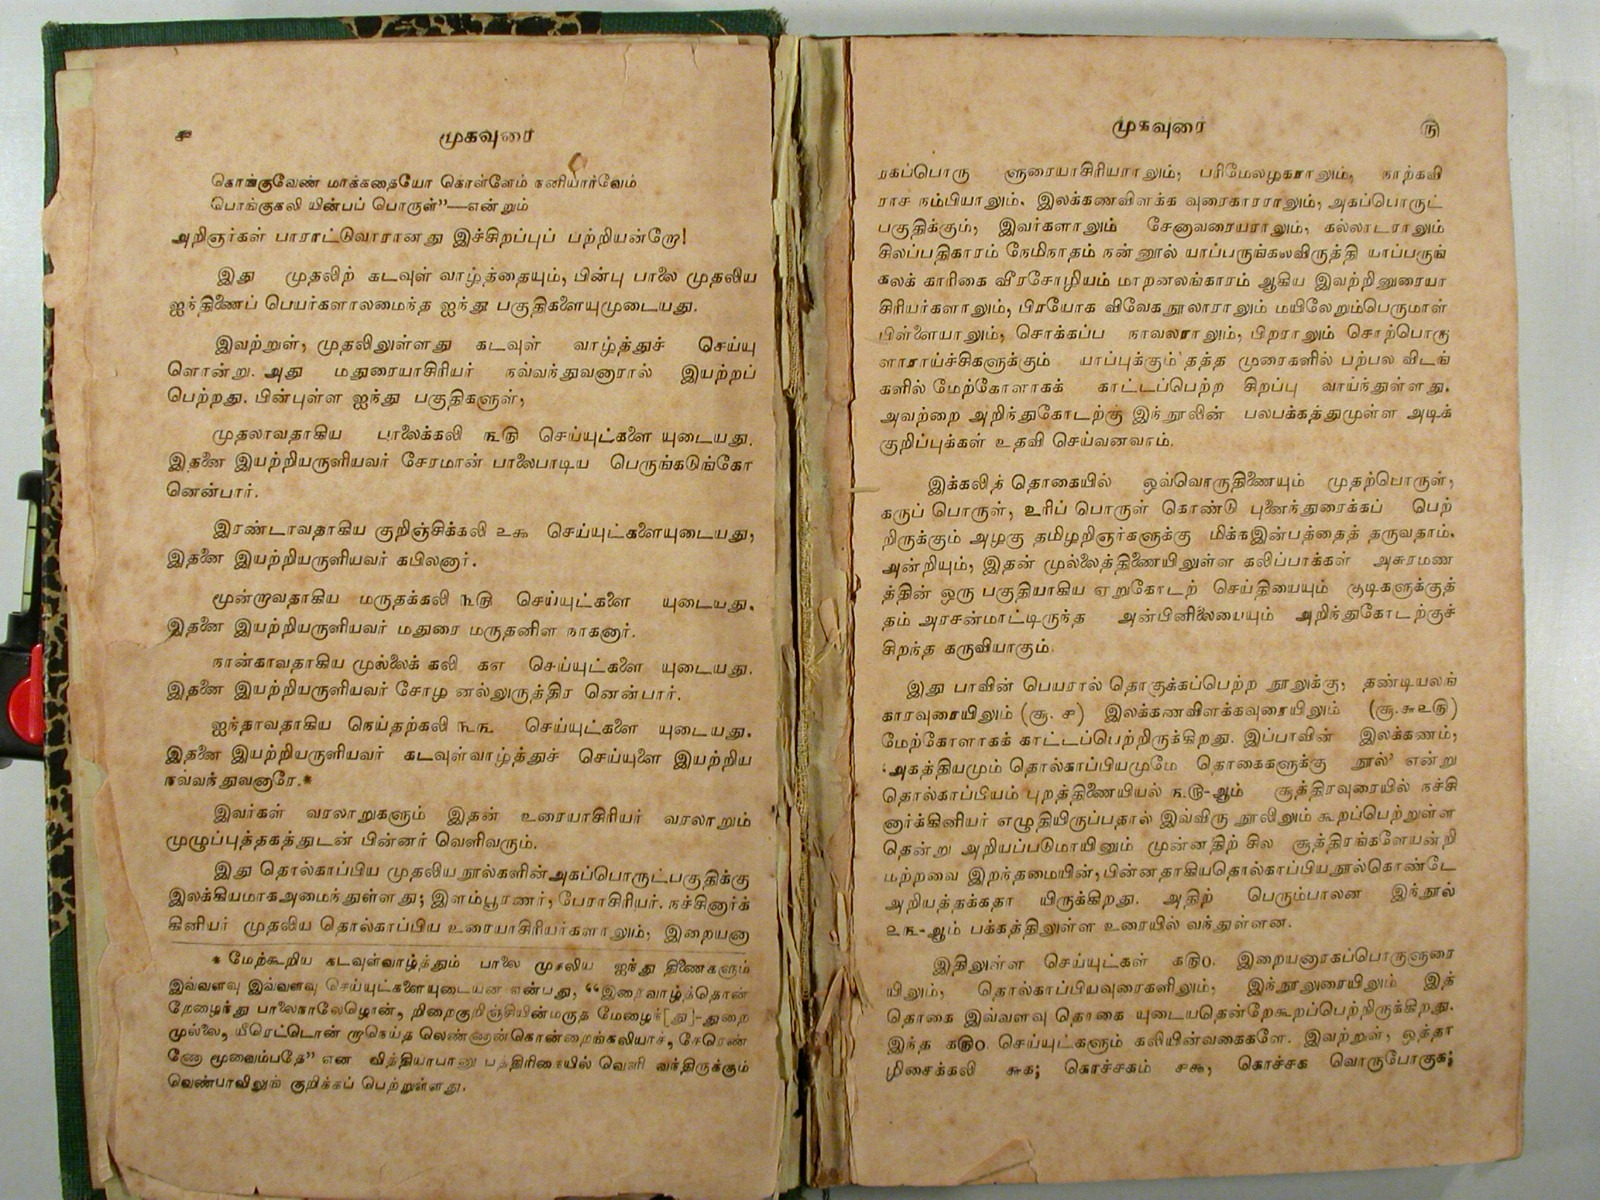 ௪ முகவுரை
கொங்குவேண் மாக்கதையோ கொள்ளேம் நனியார்வேம்
பொங்குகலி யின்பப் பொருள்”—என்றும்
அறிஞர்கள் பாராட்டுவாரானது இச்சிறப்புப் பற்றியன்றோ!
இது முதலிற் கடவுள் வாழ்த்தையும், பின்பு பாலை முதலிய
ஐந்திணைப் பெயர்களாலமைந்த ஐந்து பகுதிகளையுமுடையது.
இவற்றுள், முதலிலுள்ளது கடவுள் வாழ்த்துச் செய்யு
ளொன்று. அது மதுரையாசிரியர் நல்லந்துவனாரால் இயற்றப்
பெற்றது. பின்புள்ள ஐந்து பகுதிகளுள்,
முதலாவதாகிய பாலைக்கலி ௩௫ செய்யுட்களை யுடையது.
இதனை இயற்றியருளியவர் சேரமான் பாலைபாடிய பெருங்கடுங்கோ
னென்பார்.
இரண்டாவதாகிய குறிஞ்சிக்கலி ௨௯ செய்யுட்களையுடையது,
இதனை இயற்றியருளியவர் கபிலனார்.
மூன்றாவதாகிய மருதக்கலி ௩௫ செய்யுட்களை யுடையது.
இதனை இயற்றியருளியவர் மதுரை மருதனிள நாகனார்.
நான்காவதாகிய முல்லைக் கலி ௧௭ செய்யுட்களை யுடையது.
இதனை இயற்றியருளியவர் சோழ னல்லுருத்திர னென்பார்.
ஐந்தாவதாகிய நெய்தற்கலி ௩௩ செய்யுட்களை யுடையது.
இதனை இயற்றியருளியவர் கடவுள்வாழ்த்துச் செய்யுளை இயற்றிய
நல்லந்துவனாரே.*
இவர்கள் வரலாறுகளும் இதன் உரையாசிரியர் வரலாறும்
முழுப்புத்தகத்துடன் பின்னர் வெளிவரும்.
இது தொல்காப்பிய முதலிய நூல்களின் அகப்பொருட்பகுதிக்கு
இலக்கியமாக அமைந்துள்ளது; இளம்பூரணர், பேராசிரியர். நச்சினார்க்
கினியர் முதலிய தொல்காப்பிய உரையாசிரியர்களாலும், இறையனா
* மேற்கூறிய கடவுள்வாழ்த்தும் பாலை முதலிய ஐந்து திணைகளும்
இவ்வளவு இவ்வளவு செய்யுட்களையுடையன என்பது, “இறைவாழ்த்தொன்
றேழைந்து பாலைநாலேழொன், றிறைகுறிஞ்சியின்மருத மேழைந்[து]-துறை
முல்லை, யீரெட்டொன் றாநெய்த லெண்ணான்கொன்றைங்கலியாச், சேரெண்
ணோ மூவைம்பதே” என வித்தியாபாநு பத்திரிகையில் வெளி வந்திருக்கும்
வெண்பாவிலுங் குறிக்கப் பெற்றுள்ளது.
முகவுரை ௫
ரகப்பொரு ளுரையாசிரியராலும், பரிமேலழகராலும், நாற்கவி
ராச நம்பியாலும், இலக்கணவிளக்க வுரைகாரராலும், அகப்பொருட்
பகுதிக்கும், இவர்களாலும் சேனாவரையராலும், கல்லாடராலும்
சிலப்பதிகாரம் நேமிநாதம் நன்னூல் யாப்பருங்கலவிருத்தி யாப்பருங்
கலக் காரிகை வீரசோழியம் மாறனலங்காரம் ஆகிய இவற்றினுரையா
சிரியர்களாலும், பிரயோக விவேக நூலாராலும் மயிலேறும்பெருமாள்
பிள்ளையாலும், சொக்கப்ப நாவலராலும், பிறராலும் சொற்பொரு
ளாராய்ச்சிகளுக்கும் யாப்புக்கும் தத்த முரைகளில் பற்பல விடங்
களில் மேற்கோளாகக் காட்டப்பெற்ற சிறப்பு வாய்ந்துள்ளது.
அவற்றை அறிந்துகோடற்கு இந்நூலின் பலபக்கத்துமுள்ள அடிக்
குறிப்புக்கள் உதவி செய்வனவாம்.
இக்கலித் தொகையில் ஒவ்வொருதிணையும் முதற்பொருள்,
கருப் பொருள், உரிப் பொருள் கொண்டு புனைந்துரைக்கப் பெற்
றிருக்கும் அழகு தமிழறிஞர்களுக்கு மிக்கஇன்பத்தைத் தருவதாம்.
அன்றியும், இதன் முல்லைத்திணையிலுள்ள கலிப்பாக்கள் அசுரமண
த்தின் ஒரு பகுதியாகிய ஏறுகோடற் செய்தியையும் குடிகளுக்குத்
தம் அரசன்மாட்டிருந்த அன்பினிலையையும் அறிந்துகோடற்குச்
சிறந்த கருவியாகும்.
இது பாவின் பெயரால் தொகுக்கப்பெற்ற நூலுக்கு, தண்டியலங்
காரவுரையிலும் (சூ. ௪) இலக்கணவிளக்கவுரையிலும் (சூ. ௬௨௫)
மேற்கோளாகக் காட்டப்பெற்றிருக்கிறது. இப்பாவின் இலக்கணம்,
‘அகத்தியமும் தொல்காப்பியமுமே தொகைகளுக்கு நூல்’ என்று
தொல்காப்பியம் புறத்திணையியல் ௩௫-ஆம் சூத்திரவுரையில் நச்சி
னார்க்கினியர் எழுதியிருப்பதால் இவ்விரு நூலிலும் கூறப்பெற்றுள்ள
தென்று அறியப்படுமாயினும் முன்னதிற் சில சூத்திரங்களேயன்றி
மற்றவை இறந்தமையின், பின்னதாகியதொல்காப்பிய நூல்கொண்டே
அறியத்தக்கதா யிருக்கிறது. அதிற் பெரும்பாலன இந்நூல்
௨௩-ஆம் பக்கத்திலுள்ள உரையில் வந்துள்ளன.
இதிலுள்ள செய்யுட்கள் ௧௫௦. இறையனாரகப்பொருளுரை
யிலும், தொல்காப்பியவுரைகளிலும், இந்நூலுரையிலும் இத்
தொகை இவ்வளவு தொகை யுடையதென்றேகூறப்பெற்றிருக்கிறது.
இந்த ௧௫௦. செய்யுட்களும் கலியின்வகைகளே. இவற்றுள், ஒத்தா
ழிசைக்கலி ௬௧; கொச்சகம் ௪௬, கொச்சக வொருபோகு௧;